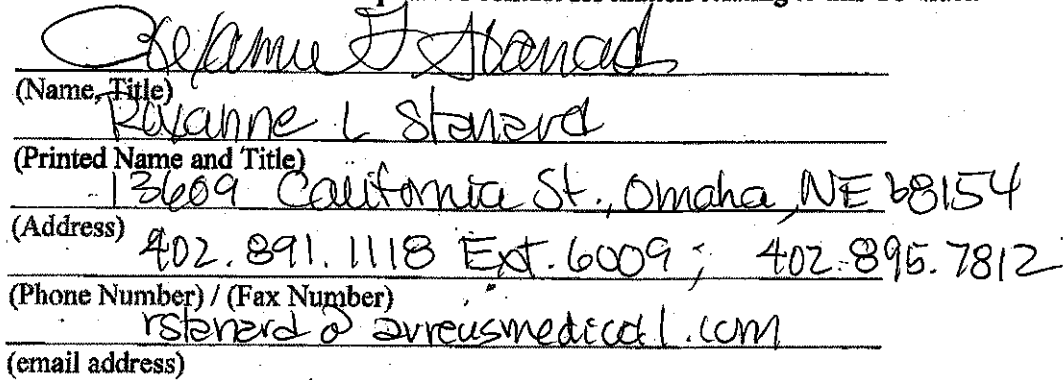 Roxanne L Stanard
(Name, Title)
Roxanne L Stanard
(Printed Name and Title)
13609 California St., Omaha, NE 68154
(Address)
402.891.1118 Ext. 6009; 402.895.7812
(Phone Number) / (Fax Number)
rstanard@aureusmedical.com
(email address)